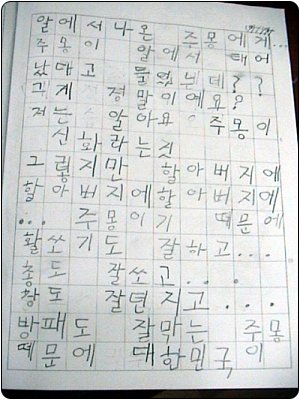 알에서 나온 주몽에게...
주몽이 알에서 태어
났다고 들었는데??
그게 정말이예요?
저는 알아요 주몽이
신화라는 것
그렇지만 할아버지에
할아버지에할아버지에
... 주몽이기 때문에
활쏘기도 잘하고...
총도 잘쏘고...
창도 잘던지고...
방패도 잘막는 주몽
때문에 대한민국이